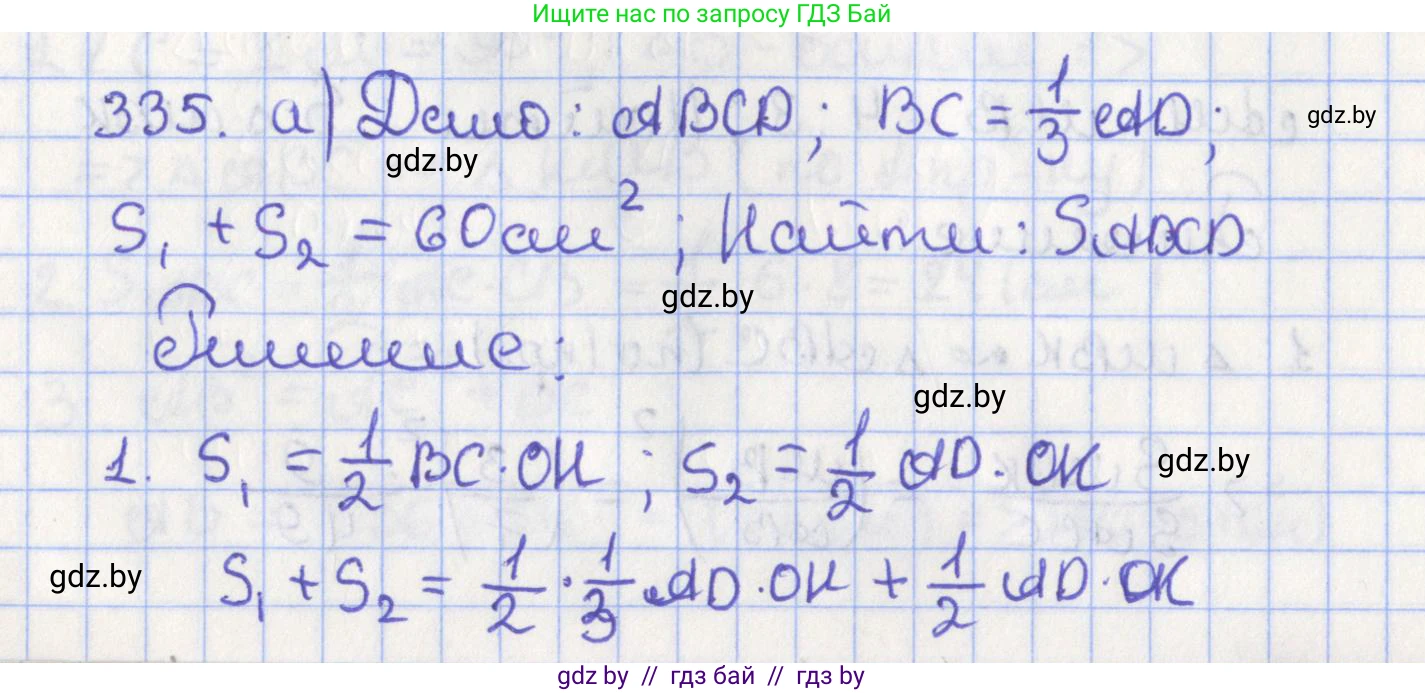 Ищите нас по запросу ГДЗ Бай
335. а) Дано: ABCD; BC = 1/3 AD; gdz.by
gdz.by
S₁ + S₂ = 60 см²; Найти: SABCD
gdz.by
Решение:
gdz.by
1. S₁ = 1/2 BC · OH; S₂ = 1/2 AD · OK gdz.by
gdz.by S₁ + S₂ = 1/2 · 1/3 AD · OH + 1/2 AD · OK
gdz.by // гдз бай // гдз by